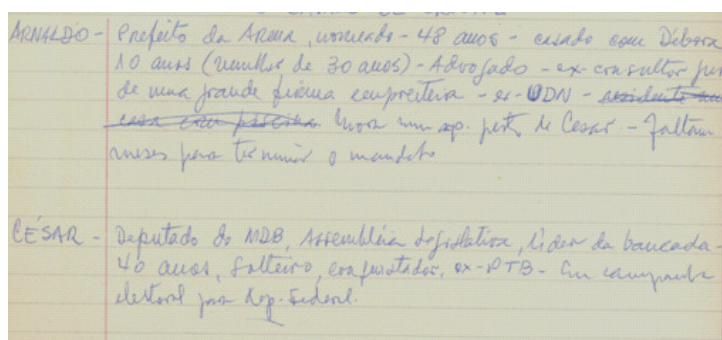 ARNALDO - Prefeito da Arena, nomeado - 48 anos - casado com Débora
10 anos (mulher de 30 anos) - Advogado - ex-consultor jur
de uma grande firma empreiteira - ex-UDN - residente em
casa com piscina Mora num ap. perto de Cesar - Faltam
meses para terminar o mandato
CÉSAR - Deputado do MDB, Assembléia Legislativa, líder da bancada -
40 anos, solteiro, conquistador, ex-PTB - Em campanha
eleitoral para Dep. Federal.